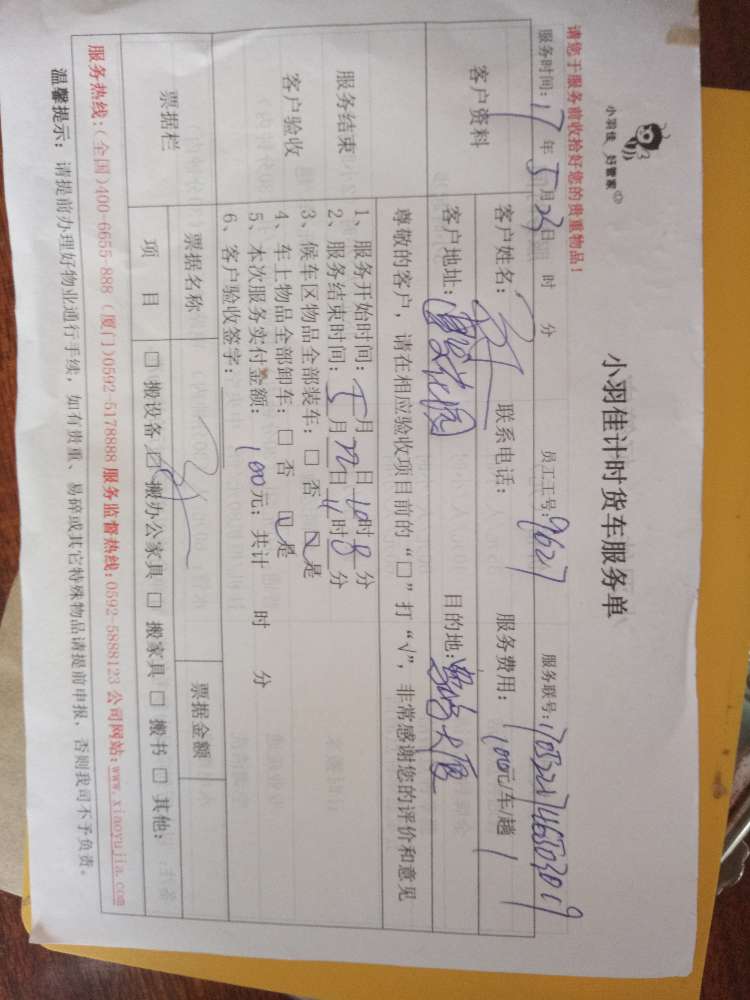 小羽佳 好管家
小羽佳计时货车服务单
请您于服务前收拾好您的贵重物品!
服务时间:17年5月23日 时 分 员工工号:9627 服务联号:
客户资料
客户姓名: 联系电话: 服务费用:100元/车/趟
客户地址:花园 目的地:大厦
尊敬的客户,请在相应验收项目前的“□”打“√”,非常感谢您的评价和意见
服务结束
客户验收
1、服务开始时间: 月 日 时 分
2、服务结束时间:5月22日 时8分
3、候车区物品全部装车:□ 否 ☑ 是
4、车上物品全部卸车:□ 否 ☑ 是
5、本次服务实付金额:100元;共计 时 分
6、客户验收签字:
票据栏
票据名称 票据金额
项 目 □ 搬设备 ☑ 搬办公家具 □ 搬家具 □ 搬书 □ 其他:
服务热线:(全国)400-6655-888(厦门)0592-5178888 服务监督热线:0592-5888123 公司网站:www.xiaoyujia.com
温馨提示:请提前办理好物业通行手续,如有贵重、易碎或其它特殊物品请提前申报,否则我司不予负责。